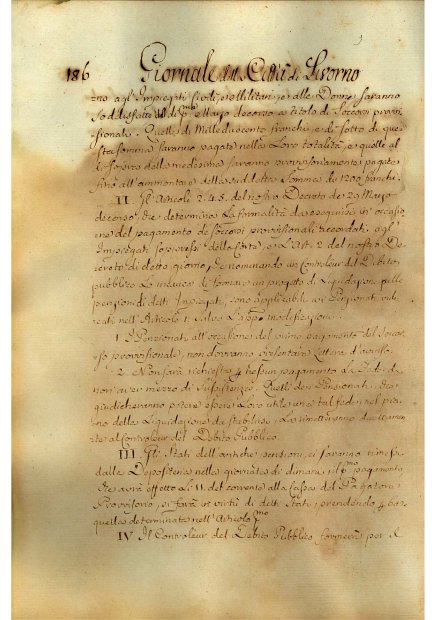 186 Giornale Livorno
agl' Impiegati Civili, e Militari, e alle Donne saranno
soddisfatte di p.mo Maggio decorso a titolo di Soccorsi provvi-
sionali. Quelle di Milleducento franchi, e di sotto di que-
sta somma saranno pagate nella Loro totalità, e quelle al
di sopra delle medesime saranno provvisoriamente pagate
fino all'ammontare della suddetta Somma de 1200 franchi.
II. Gli Articoli 2. 4. 5. del nostro Decreto de 29 Marzo
decorso, che determina la formalità da eseguirsi in occasio-
ne del pagamento de Soccorsi provvisionali accordati agl'
Impiegati Soppressi della Corte, e l'Art. 2 del nostro De-
creto di detto giorno, che nominando un Controleur del Debito
pubblico Lo incarica di formare un progetto di Liquidazione sulle
pensioni di detti Impiegati, sono applicabili ai Pensionati indi-
cati nell'Articolo 1. Salvo L'app. modificazioni.
1. I Pensionati all'occasione del primo pagamento del Soccor-
so provvisionale, non dovranno presentare Lettera d'avviso.
2. Non sarà richiesto p nessun pagamento la Fede di
non aver mezzo di Sussistenza. Quelli dei Pensionati, che
giudicheranno potere essere Loro utile una tal fede nel pia-
no della Liquidazione da stabilirsi, La rimetteranno direttamen-
te al Controleur del Debito Pubblico.
III. Gli Stati dell'antiche pensioni, ci saranno rimessi
dalla Depositeria nella giornata di dimani, il p.mo pagamento
che avrà effetto Li 11. del corrente alla Cassa del Pagatore
Provvisorio, si farà in virtù di detti Stati, prendendo p base
quella determinata nell'Articolo p.mo
IV. Il Controleur del Debito Pubblico formerà per il